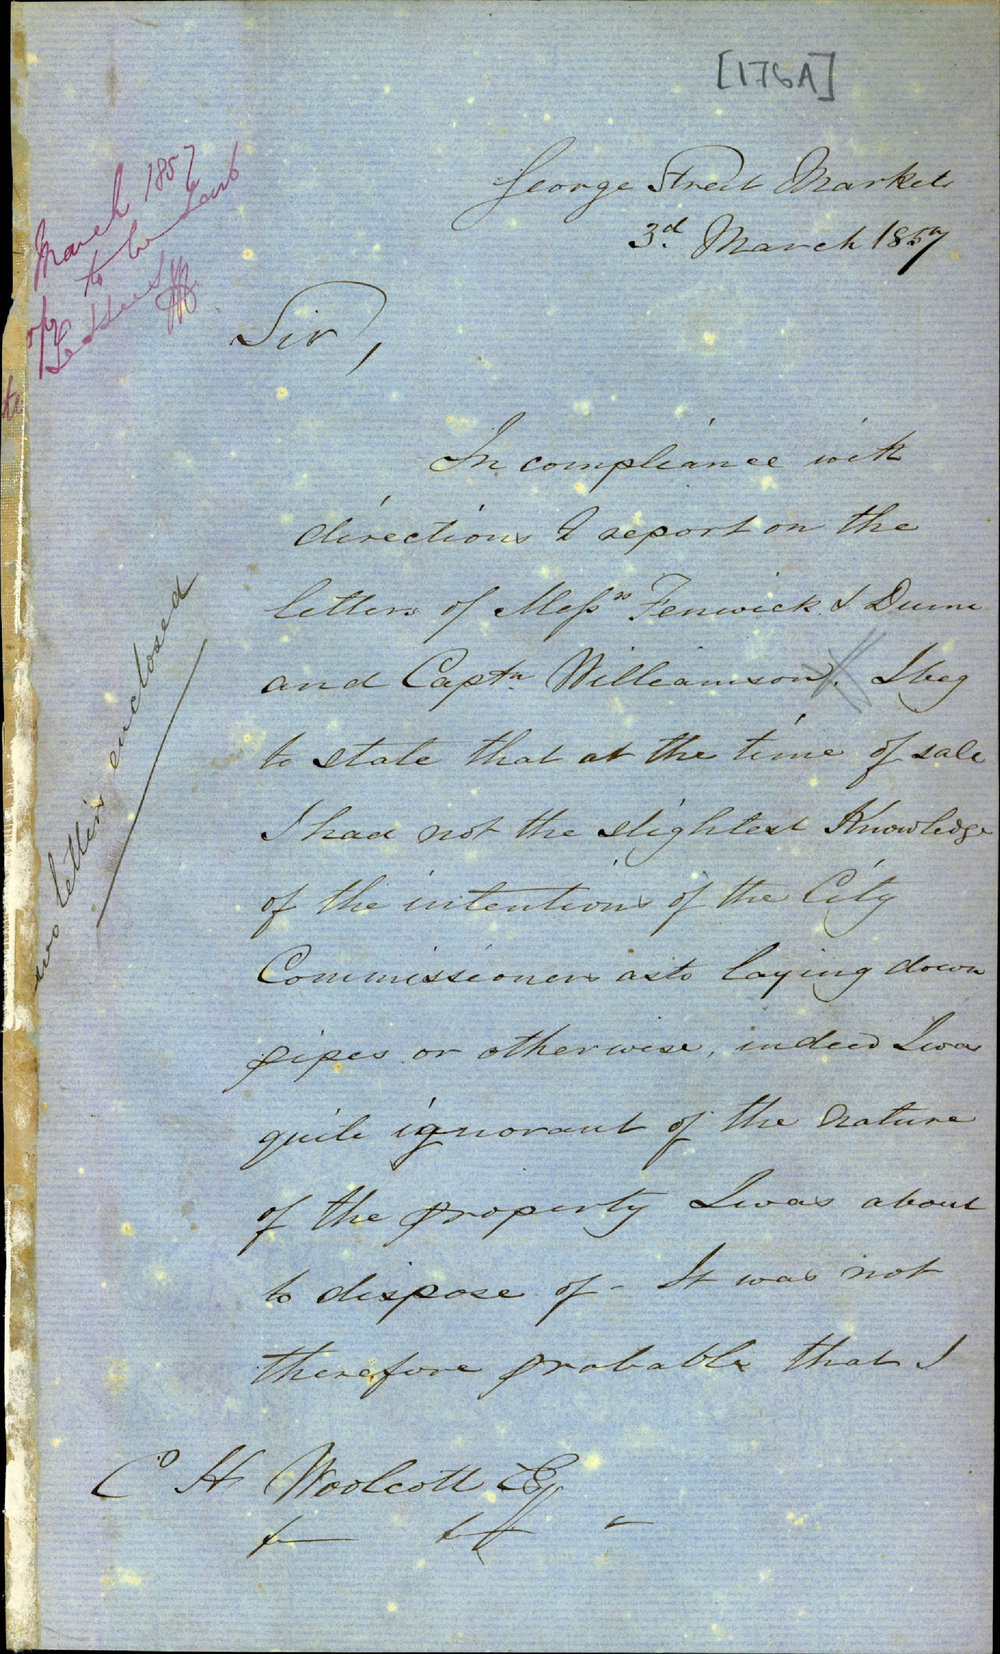 [176A]
George Street Markets
3d March 1857
March 1857
to be sent
Letters
Sir,
In compliance with
directions I report on the
letters of Messrs Fenwick & Dunn
and Captn Williamson. I beg
to state that at the time of sale
I had not the slightest Knowledge
of the intentions of the City
Commissioners as to laying down
pipes or otherwise, indeed I was
quite ignorant of the nature
of the property I was about
to dispose of - It was not
therefore probable that I
C H Woolcott Esq
two letters enclosed